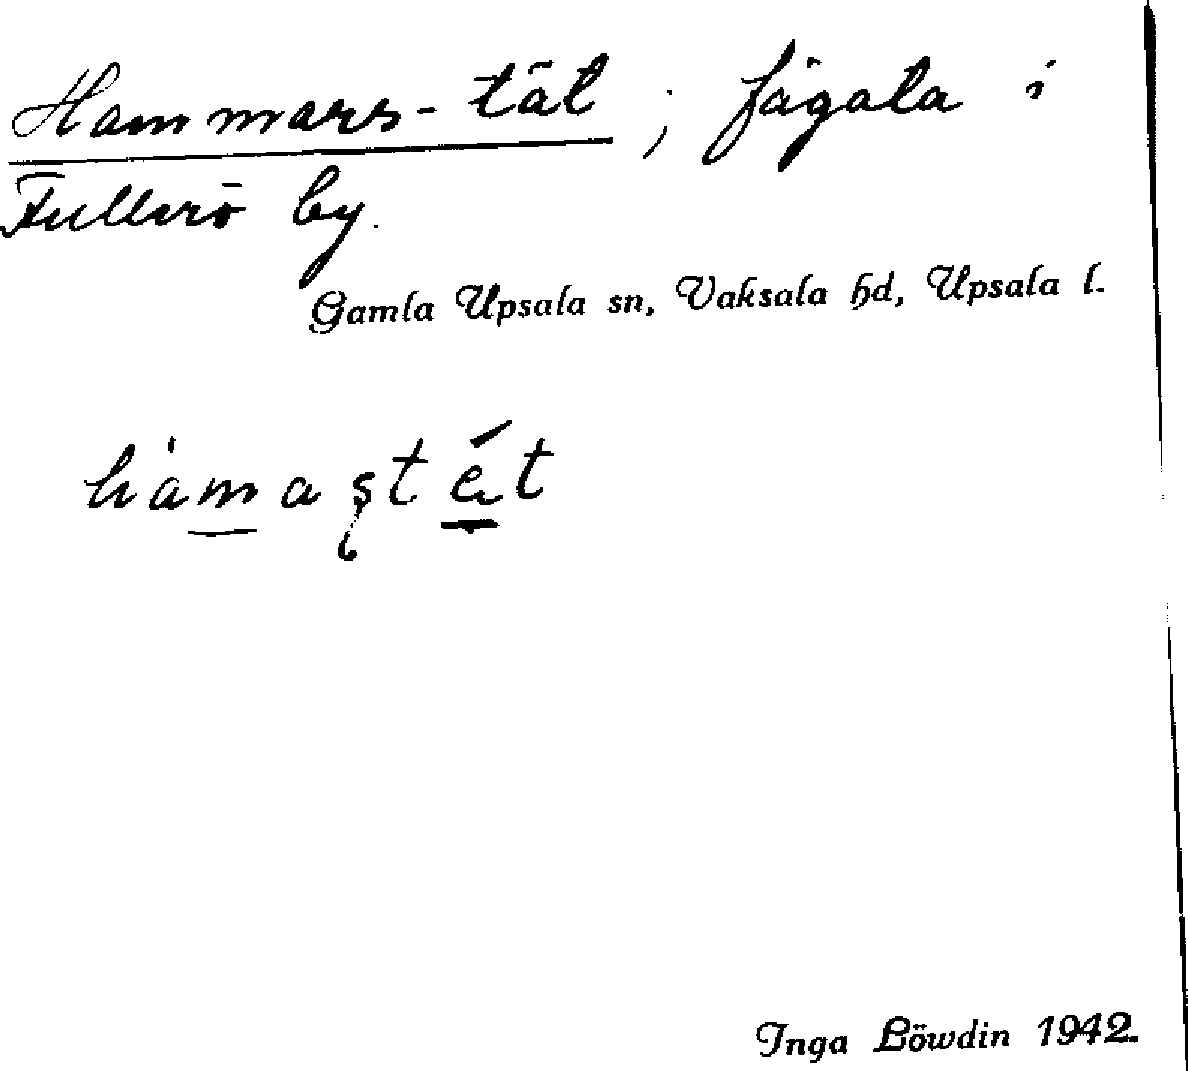 Hammars-tät; fägata i
Fullerö by.
Gamla Upsala sn, Vaksala hd, Upsala l.
Inga Löwdin 1942.